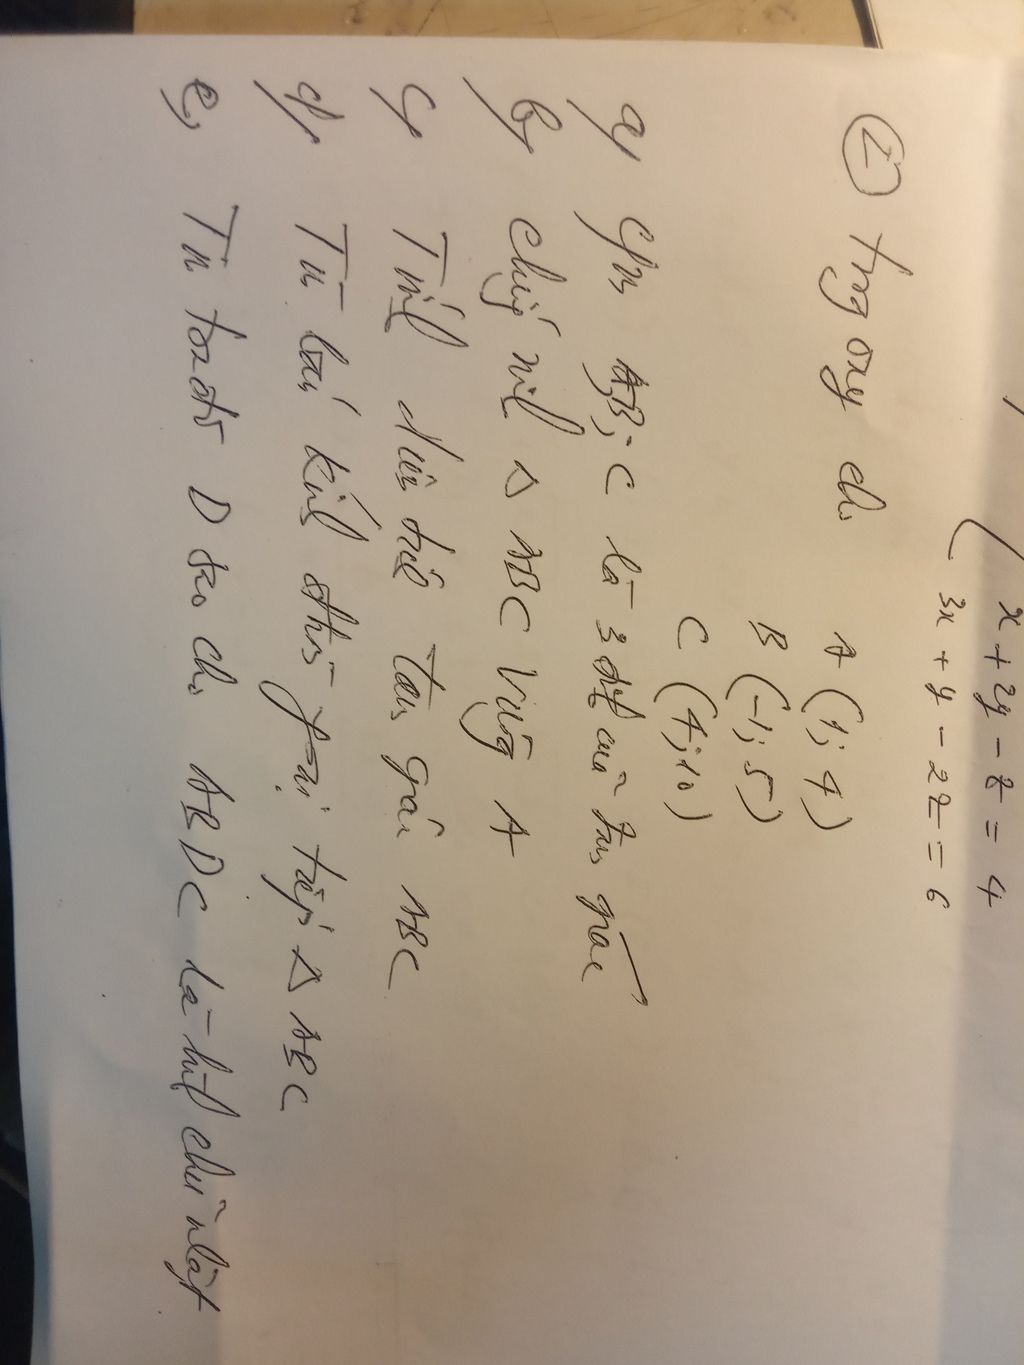 x + 2y - z = 4
3x + y - 2z = 6
② trog oxy ch
A (1; 4)
B (-1; 5)
C (4; 10)
a/ C/m A,B; C là 3 của tam giác
b/ chứng Δ ABC vuông A
c/ Tính diện tích tam giác ABC
d/ Tìm bán kính đường goại tiếp Δ ABC
e, Tìm toạ độ D sao ch ABDC là hình chữ nhật